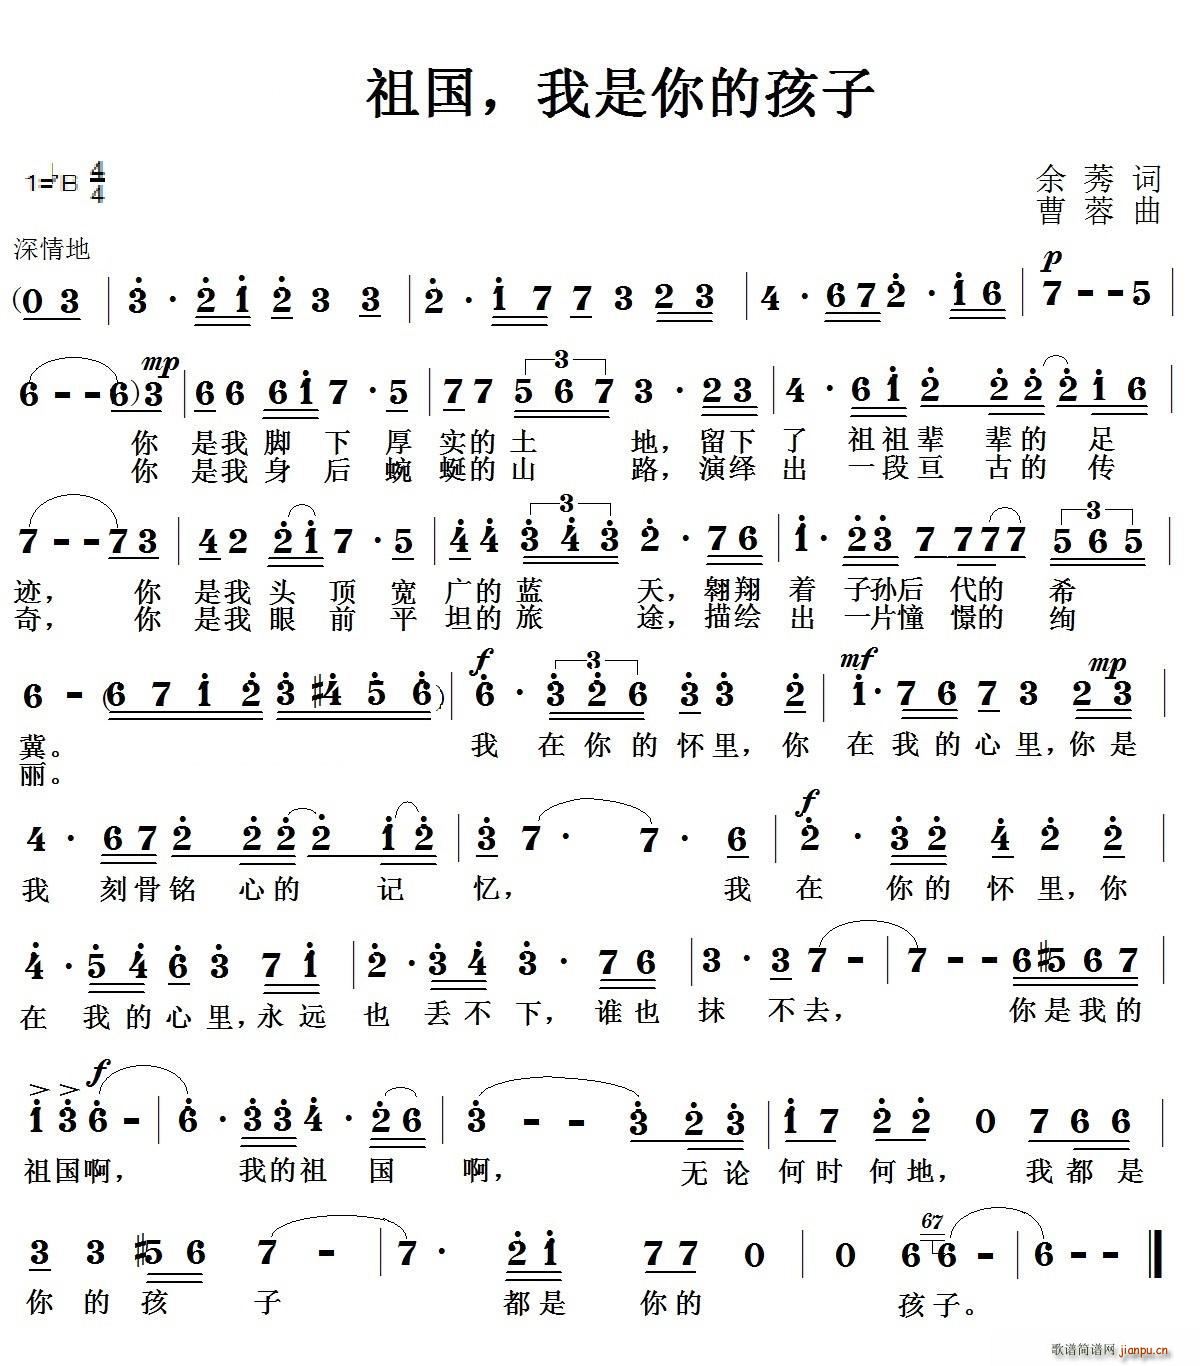 祖国，我是你的孩子
1=♭B 4/4
余莠词
曹蓉曲
深情地
p
(0 3 | 3· 2 1 2 3 3 | 2· 1 7 7 3 2 3 | 4· 6 7 2· 1 6 | 7 - - 5 |
mp
6 - - 6) 3 | 6 6 6 1 7· 5 | 7 7 5 6 7 3· 2 3 | 4· 6 1 2 2 2 2 1 6 |
你是我脚下厚实的土地，留下了祖祖辈辈的足
你是我身后蜿蜒的山路，演绎出一段亘古的传
7 - - 7 3 | 4 2 2 1 7· 5 | 4 4 3 4 3 2· 7 6 | 1· 2 3 7 7 7 7 5 6 5 |
迹，你是我头顶宽广的蓝天，翱翔着子孙后代的希
奇，你是我眼前平坦的旅途，描绘出一片憧憬的绚
f mf mp
6 - (6 7 1 2 3 #4 5 6) | 6· 3 2 6 3 3 2 | 1· 7 6 7 3 2 3 |
冀。我在你的怀里，你在我的心里，你是
丽。
f
4· 6 7 2 2 2 2 1 2 | 3 7· 7· 6 | 2· 3 2 4 2 2 |
我刻骨铭心的记忆，我在你的怀里，你
4· 5 4 6 3 7 1 | 2· 3 4 3· 7 6 | 3· 3 7 - | 7 - - 6 #5 6 7 |
在我的心里，永远也丢不下，谁也抹不去，你是我的
f
1 3 6 - | 6· 3 3 4· 2 6 | 3 - - 3 2 3 | 1 7 2 2 0 7 6 6 |
祖国啊，我的祖国啊，无论何时何地，我都是
67
3 3 #5 6 7 - | 7· 2 1 7 7 0 | 0 6 6 - | 6 - - ‖
你的孩子都是你的孩子。
歌谱简谱网 jianpu.cn